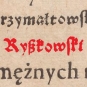 rzymałtowsk
Ryßkowski
mężnych